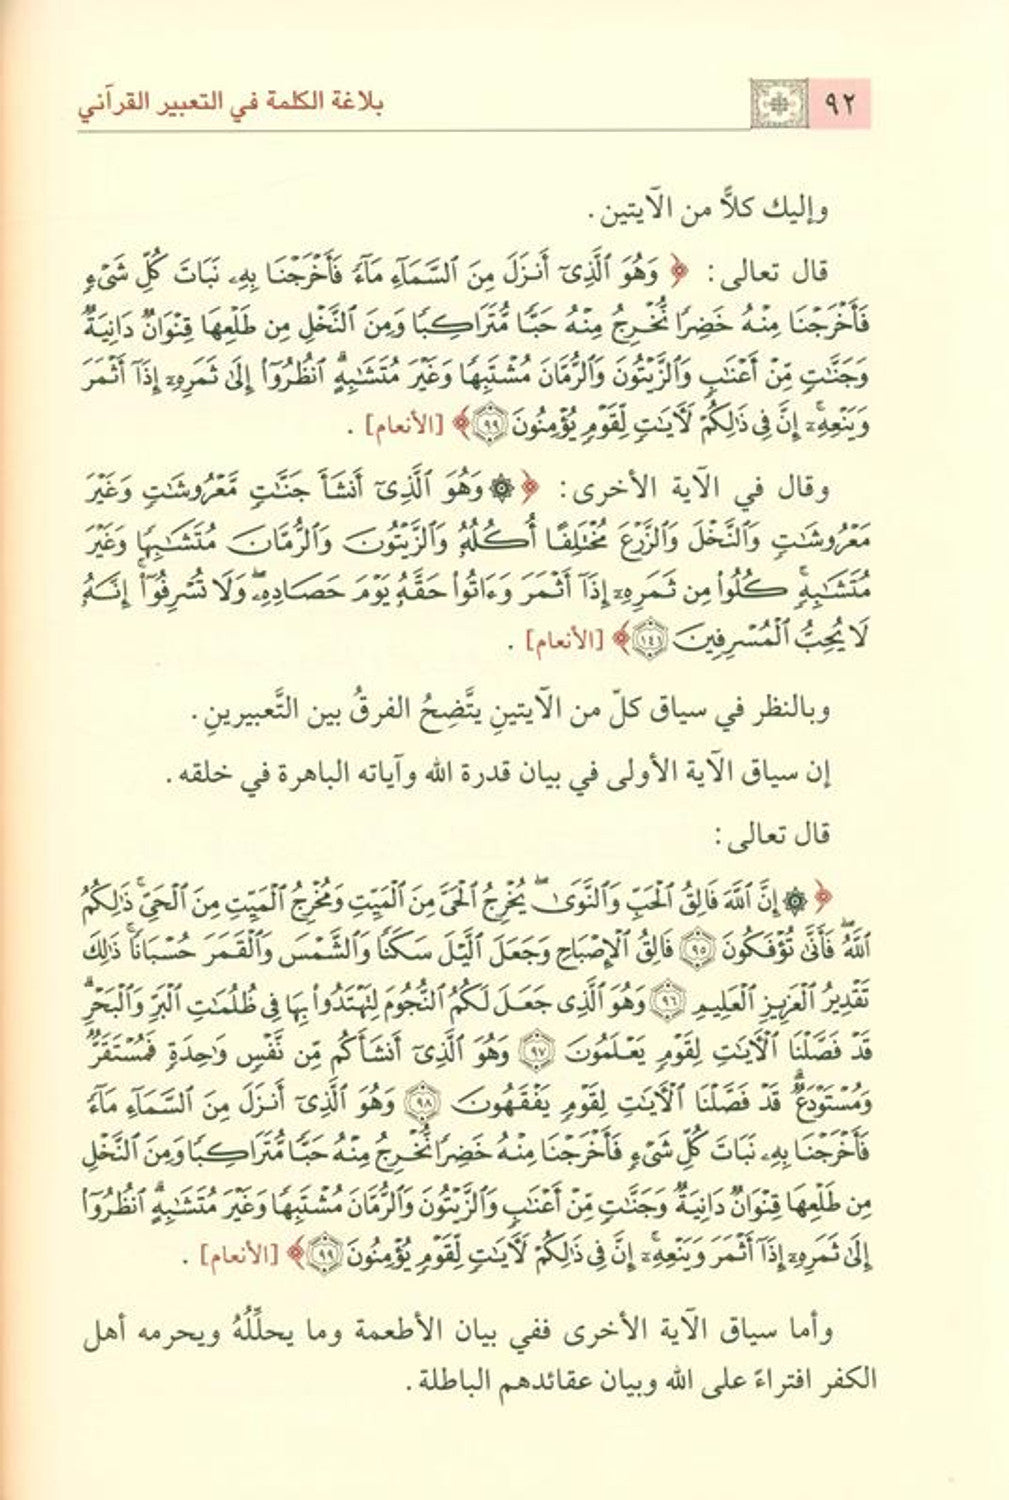 ٩٢
بلاغة الكلمة في التعبير القرآني
وإليك كلاًّ من الآيتين.
قال تعالى: ﴿ وَهُوَ ٱلَّذِىٓ أَنزَلَ مِنَ ٱلسَّمَآءِ مَآءً فَأَخْرَجْنَا بِهِۦ نَبَاتَ كُلِّ شَىْءٍ
فَأَخْرَجْنَا مِنْهُ خَضِرًا نُّخْرِجُ مِنْهُ حَبًّا مُّتَرَاكِبًا وَمِنَ ٱلنَّخْلِ مِن طَلْعِهَا قِنْوَانٌ دَانِيَةٌ
وَجَنَّـٰتٍ مِّنْ أَعْنَابٍ وَٱلزَّيْتُونَ وَٱلرُّمَّانَ مُشْتَبِهًا وَغَيْرَ مُتَشَـٰبِهٍ ۗ ٱنظُرُوٓا۟ إِلَىٰ ثَمَرِهِۦٓ إِذَآ أَثْمَرَ
وَيَنْعِهِۦٓ ۚ إِنَّ فِى ذَٰلِكُمْ لَـَٔايَـٰتٍ لِّقَوْمٍ يُؤْمِنُونَ ٩٩ ﴾ [الأنعام] .
وقال في الآية الأخرى: ﴿ ۞ وَهُوَ ٱلَّذِىٓ أَنشَأَ جَنَّـٰتٍ مَّعْرُوشَـٰتٍ وَغَيْرَ
مَعْرُوشَـٰتٍ وَٱلنَّخْلَ وَٱلزَّرْعَ مُخْتَلِفًا أُكُلُهُۥ وَٱلزَّيْتُونَ وَٱلرُّمَّانَ مُتَشَـٰبِهًا وَغَيْرَ
مُتَشَـٰبِهٍ ۚ كُلُوا۟ مِن ثَمَرِهِۦٓ إِذَآ أَثْمَرَ وَءَاتُوا۟ حَقَّهُۥ يَوْمَ حَصَادِهِۦ ۖ وَلَا تُسْرِفُوٓا۟ ۚ إِنَّهُۥ
لَا يُحِبُّ ٱلْمُسْرِفِينَ ١٤١ ﴾ [الأنعام] .
وبالنظر في سياق كلّ من الآيتينِ يتَّضِحُ الفرقُ بين التَّعبيرينِ.
إن سياق الآية الأولى في بيان قدرة الله وآياته الباهرة في خلقه.
قال تعالى:
﴿ ۞ إِنَّ ٱللَّهَ فَالِقُ ٱلْحَبِّ وَٱلنَّوَىٰ ۖ يُخْرِجُ ٱلْحَىَّ مِنَ ٱلْمَيِّتِ وَمُخْرِجُ ٱلْمَيِّتِ مِنَ ٱلْحَىِّ ۚ ذَٰلِكُمُ
ٱللَّهُ ۖ فَأَنَّىٰ تُؤْفَكُونَ ٩٥ فَالِقُ ٱلْإِصْبَاحِ وَجَعَلَ ٱلَّيْلَ سَكَنًا وَٱلشَّمْسَ وَٱلْقَمَرَ حُسْبَانًا ۚ ذَٰلِكَ
تَقْدِيرُ ٱلْعَزِيزِ ٱلْعَلِيمِ ٩٦ وَهُوَ ٱلَّذِى جَعَلَ لَكُمُ ٱلنُّجُومَ لِتَهْتَدُوا۟ بِهَا فِى ظُلُمَـٰتِ ٱلْبَرِّ وَٱلْبَحْرِ ۗ
قَدْ فَصَّلْنَا ٱلْـَٔايَـٰتِ لِقَوْمٍ يَعْلَمُونَ ٩٧ وَهُوَ ٱلَّذِىٓ أَنشَأَكُم مِّن نَّفْسٍ وَٰحِدَةٍ فَمُسْتَقَرٌّ
وَمُسْتَوْدَعٌ ۗ قَدْ فَصَّلْنَا ٱلْـَٔايَـٰتِ لِقَوْمٍ يَفْقَهُونَ ٩٨ وَهُوَ ٱلَّذِىٓ أَنزَلَ مِنَ ٱلسَّمَآءِ مَآءً
فَأَخْرَجْنَا بِهِۦ نَبَاتَ كُلِّ شَىْءٍ فَأَخْرَجْنَا مِنْهُ خَضِرًا نُّخْرِجُ مِنْهُ حَبًّا مُّتَرَاكِبًا وَمِنَ ٱلنَّخْلِ
مِن طَلْعِهَا قِنْوَانٌ دَانِيَةٌ وَجَنَّـٰتٍ مِّنْ أَعْنَابٍ وَٱلزَّيْتُونَ وَٱلرُّمَّانَ مُشْتَبِهًا وَغَيْرَ مُتَشَـٰبِهٍ ۗ ٱنظُرُوٓا۟
إِلَىٰ ثَمَرِهِۦٓ إِذَآ أَثْمَرَ وَيَنْعِهِۦٓ ۚ إِنَّ فِى ذَٰلِكُمْ لَـَٔايَـٰتٍ لِّقَوْمٍ يُؤْمِنُونَ ٩٩ ﴾ [الأنعام] .
وأما سياق الآية الأخرى ففي بيان الأطعمة وما يحلِّلُهُ ويحرمه أهل
الكفر افتراءً على الله وبيان عقائدهم الباطلة.